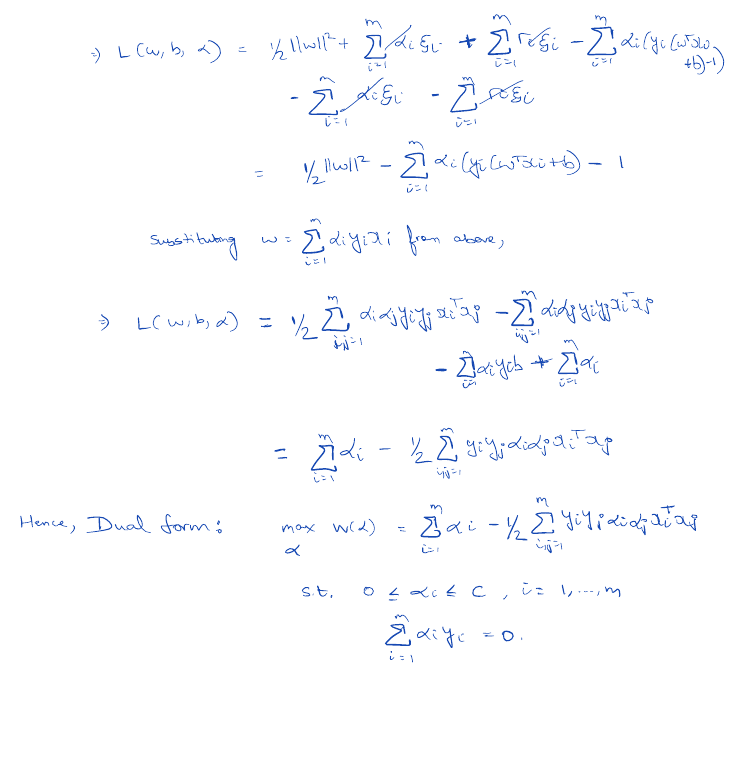 ⇒ L(w, b, α) = ½||w||² + Σ_{i=1}^{m} α_i ξ_i + Σ_{i=1}^{m} r_i ξ_i − Σ_{i=1}^{m} α_i (y_i (wᵀx_i + b) − 1)
− Σ_{i=1}^{m} α_i ξ_i − Σ_{i=1}^{m} r_i ξ_i
= ½||w||² − Σ_{i=1}^{m} α_i (y_i (wᵀx_i + b) − 1
Substituting w = Σ_{i=1}^{m} α_i y_i x_i from above,
⇒ L(w, b, α) = ½ Σ_{i,j=1}^{m} α_i α_j y_i y_j x_iᵀ x_j − Σ_{i,j=1}^{m} α_i α_j y_i y_j x_iᵀ x_j
− Σ_{i=1}^{m} α_i y_i b + Σ_{i=1}^{m} α_i
= Σ_{i=1}^{m} α_i − ½ Σ_{i,j=1}^{m} y_i y_j α_i α_j x_iᵀ x_j
Hence, Dual form: max_α W(α) = Σ_{i=1}^{m} α_i − ½ Σ_{i,j=1}^{m} y_i y_j α_i α_j x_iᵀ x_j
s.t. 0 ≤ α_i ≤ C, i = 1, ..., m
Σ_{i=1}^{m} α_i y_i = 0.